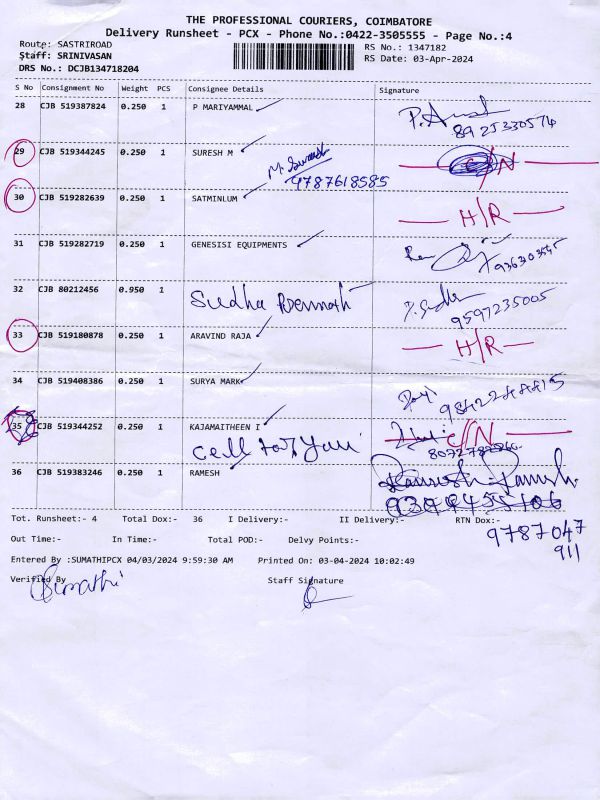 THE PROFESSIONAL COURIERS, COIMBATORE
Delivery Runsheet - PCX - Phone No.:0422-3505555 - Page No.:4
Route: SASTRIROAD
RS No.: 1347182
Staff: SRINIVASAN
RS Date: 03-Apr-2024
DRS No.: DCJB134718204
S No Consignment No Weight PCS Consignee Details Signature
28 CJB 519387824 0.250 1 P MARIYAMMAL
8925330574
29 CJB 519344245 0.250 1 SURESH M
9787618585
30 CJB 519282639 0.250 1 SATMINLUM H/R
31 CJB 519282719 0.250 1 GENESISI EQUIPMENTS
32 CJB 80212456 0.950 1 Sudha
9597235005
33 CJB 519180878 0.250 1 ARAVIND RAJA H/R
34 CJB 519408386 0.250 1 SURYA MARK
35 CJB 519344252 0.250 1 KAJAMAITHEEN I C/N
36 CJB 519383246 0.250 1 RAMESH
Tot. Runsheet:- 4 Total Dox:- 36 I Delivery:- II Delivery:- RTN Dox:-
9787047
911
Out Time:- In Time:- Total POD:- Delvy Points:-
Entered By :SUMATHIPCX 04/03/2024 9:59:30 AM Printed On: 03-04-2024 10:02:49
Verified By Staff Signature
Sumathi